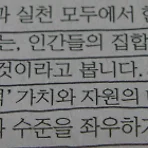 과 실천 모두에서
는. 인간들의 집합
것이라고 봅니다.
가치와 자원의
수준을 좌우하